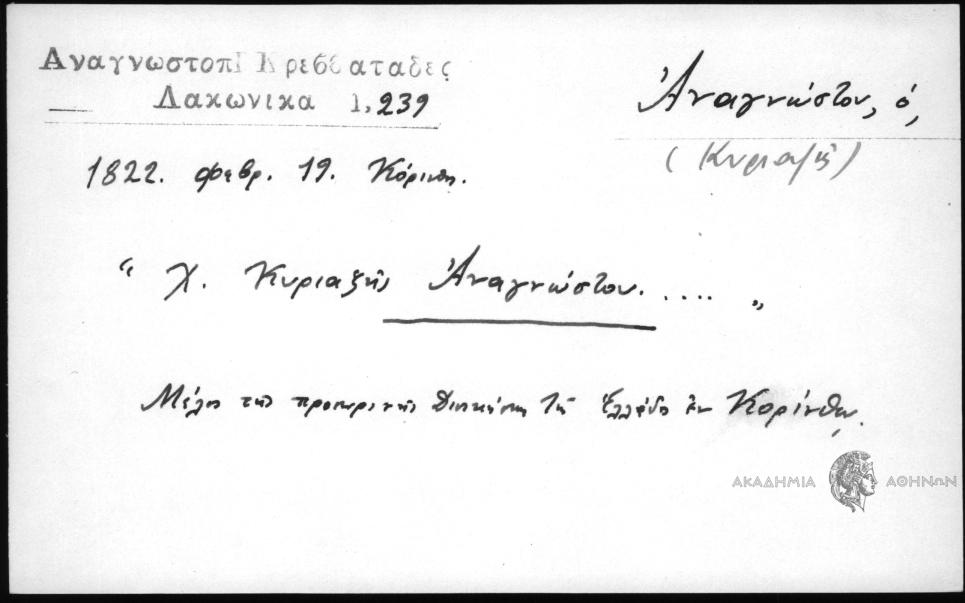 Αναγνωστοπ Κρεββαταδες
Λακωνικα 1, 239
Ἀναγνώστου, ὁ,
(Κυριαζῆς)
1822. Φεβρ. 19. Κόρινθος.
“ Χ. Κυριαζῆς Ἀναγνώστου. .... „
Μέλος τῆς προσωρινῆς Διοικήσεως τῆς Ἑλλάδος ἐν Κορίνθῳ.
ΑΚΑΔΗΜΙΑ ΑΘΗΝΩΝ